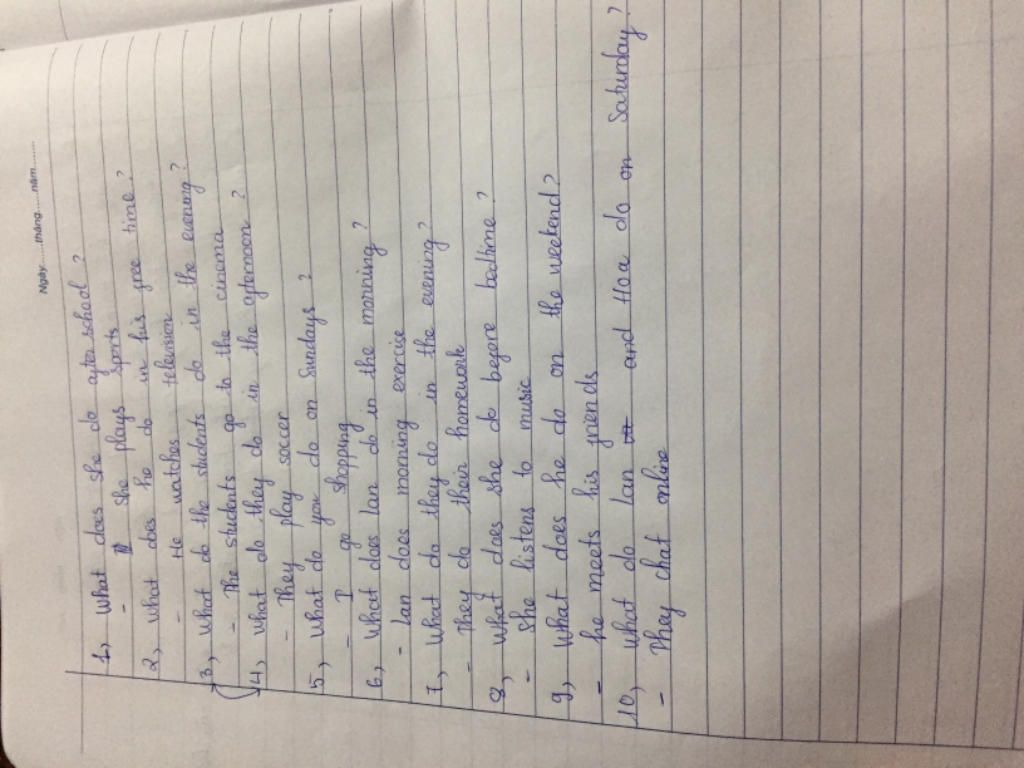 Ngày......tháng......năm......
1, What does she do after school ?
- She plays sports
2, What does he do in his free time ?
- He watches television
3, What do the students do in the evening ?
- The students go to the cinema
4, What do they do in the afternoon ?
- They play soccer
5, What do you do on Sundays ?
- I go shopping
6, What does Lan do in the morning ?
- Lan does morning exercise
7, What do they do in the evening ?
- They do their homework
8, What does she do before bedtime ?
- She listens to music
9, What does he do on the weekend ?
- he meets his friends
10, What do Lan and Hoa do on Saturday ?
- They chat online